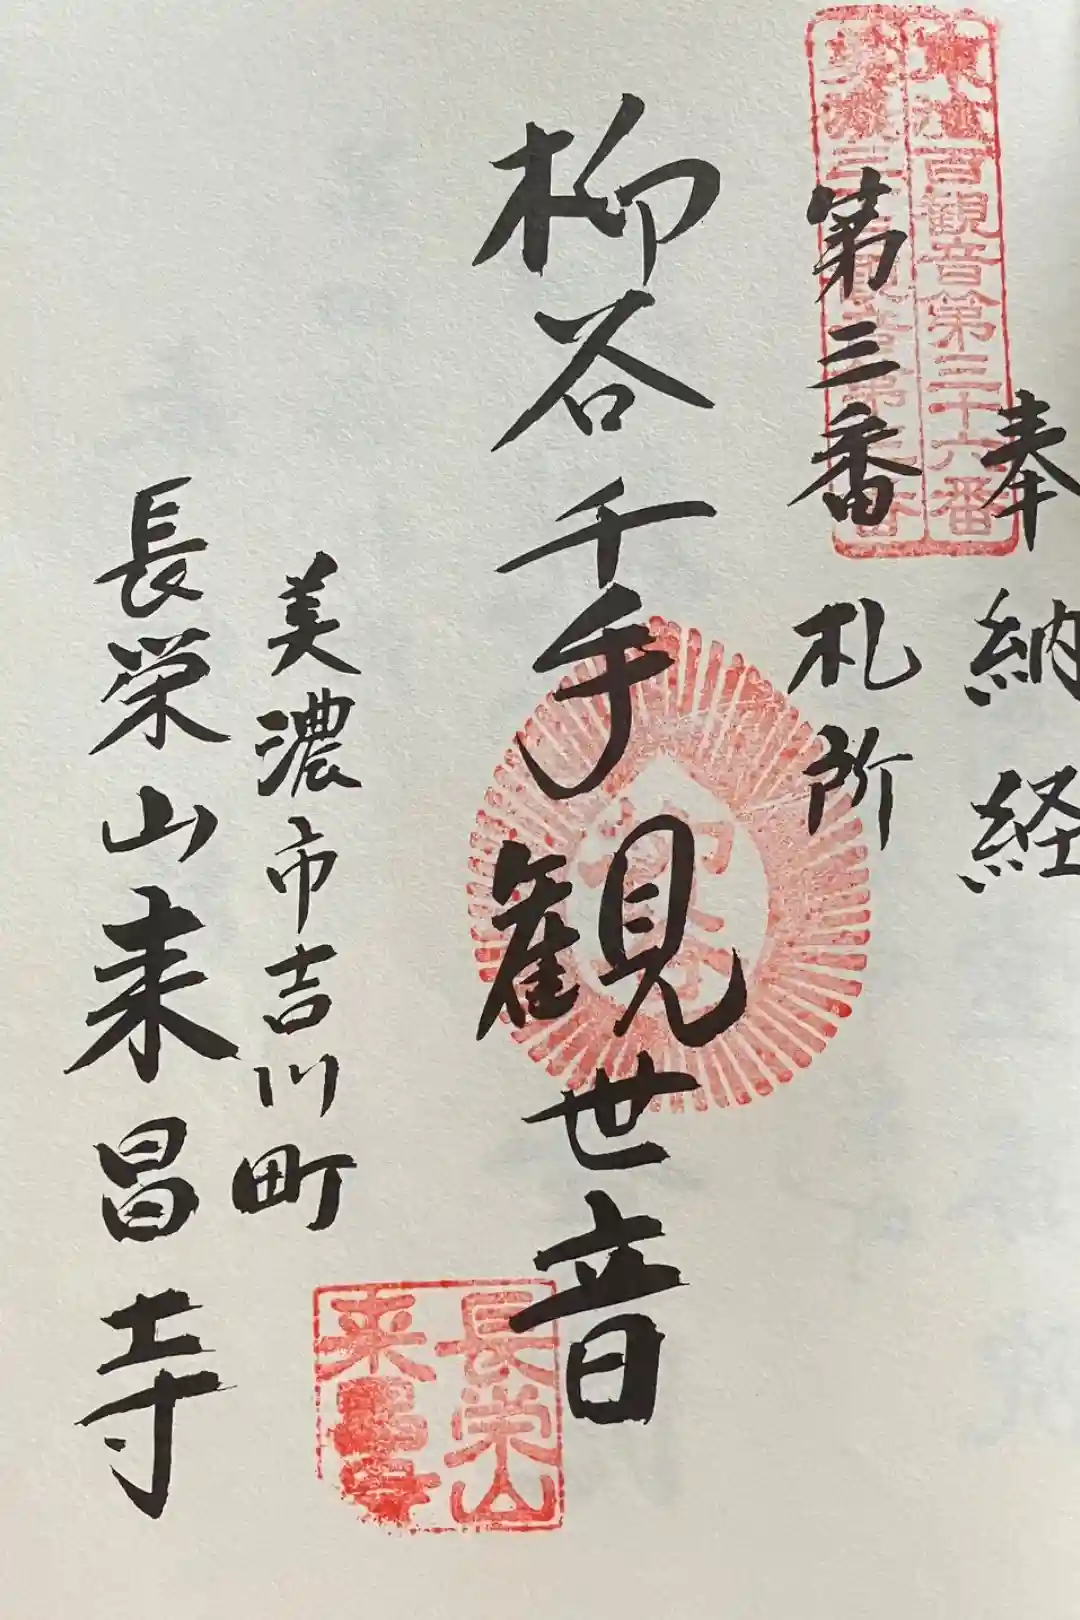 奉納経
東海百観音第三十六番
美濃三十三観音第三番
第三番札所
柳谷千手観世音
美濃市吉川町
長栄山来昌寺
長栄山
来昌寺